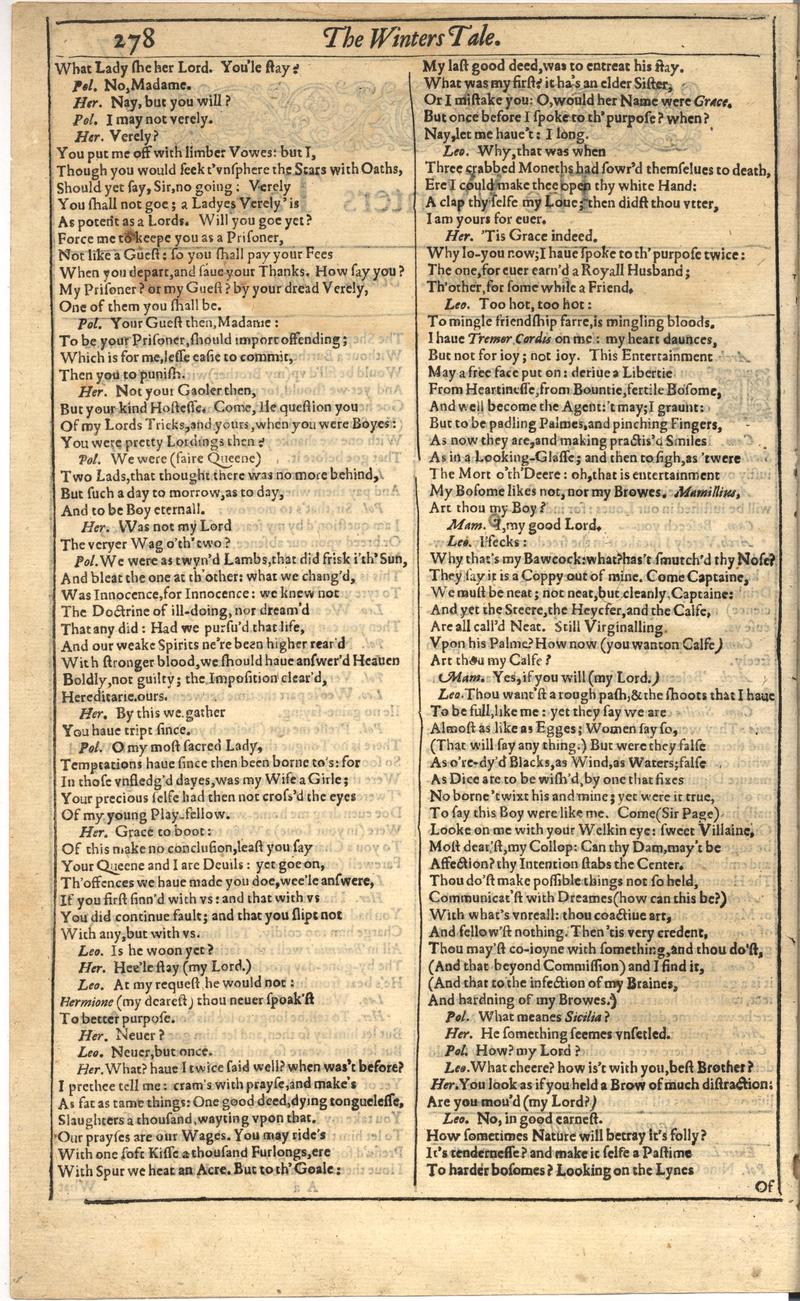 278
The Winters Tale.
What Lady she her Lord. You'le stay?
Pol. No, Madame.
Her. Nay, but you will?
Pol. I may not verely.
Her. Verely?
You put me off with limber Vowes: but I,
Though you would seek t'vnsphere the Stars with Oaths,
Should yet say, Sir, no going: Verely
You shall not goe; a Ladyes Verely 'is
As potent as a Lords. Will you goe yet?
Force me to keepe you as a Prisoner,
Not like a Guest: so you shall pay your Fees
When you depart, and saue your Thanks. How say you?
My Prisoner? or my Guest? by your dread Verely,
One of them you shall be.
Pol. Your Guest then, Madame:
To be your Prisoner, should import offending;
Which is for me, lesse easie to commit,
Then you to punish.
Her. Not your Gaoler then,
But your kind Hostesse. Come, Ile question you
Of my Lords Tricks, and yours, when you were Boyes:
You were pretty Lordings then?
Pol. We were (faire Queene)
Two Lads, that thought there was no more behind,
But such a day to morrow, as to day,
And to be Boy eternall.
Her. Was not my Lord
The veryer Wag o'th' two?
Pol. We were as twyn'd Lambs, that did frisk i'th' Sun,
And bleat the one at th'other: what we chang'd,
Was Innocence, for Innocence: we knew not
The Doctrine of ill-doing, nor dream'd
That any did: Had we pursu'd that life,
And our weake Spirits ne're been higher rear'd
With stronger blood, we should haue answer'd Heauen
Boldly, not guilty; the Imposition clear'd,
Hereditarie ours.
Her. By this we gather
You haue tript since.
Pol. O my most sacred Lady,
Temptations haue since then been borne to's: for
In those vnfledg'd dayes, was my Wife a Girle;
Your precious selfe had then not cross'd the eyes
Of my young Play-fellow.
Her. Grace to boot:
Of this make no conclusion, least you say
Your Queene and I are Deuils: yet goe on,
Th'offences we haue made you doe, wee'le answere,
If you first sinn'd with vs: and that with vs
You did continue fault; and that you slipt not
With any, but with vs.
Leo. Is he woon yet?
Her. Hee'le stay (my Lord.)
Leo. At my request, he would not:
Hermione (my dearest) thou neuer spoak'st
To better purpose.
Her. Neuer?
Leo. Neuer, but once.
Her. What? haue I twice said well? when was't before?
I prethee tell me: cram's with prayse, and make's
As fat as tame things: One good deed, dying tonguelesse,
Slaughters a thousand, wayting vpon that.
Our prayses are our Wages. You may ride's
With one soft Kisse a thousand Furlongs, ere
With Spur we heat an Acre. But to th' Goale:
My last good deed, was to entreat his stay.
What was my first? it ha's an elder Sister,
Or I mistake you: O, would her Name were Grace.
But once before I spoke to th' purpose? when?
Nay, let me haue't: I long.
Leo. Why, that was when
Three crabbed Moneths had sowr'd themselues to death,
Ere I could make thee open thy white Hand:
A clap thy selfe my Loue; then didst thou vtter,
I am yours for euer.
Her. 'Tis Grace indeed.
Why lo-you now; I haue spoke to th' purpose twice:
The one, for euer earn'd a Royall Husband;
Th'other, for some while a Friend.
Leo. Too hot, too hot:
To mingle friendship farre, is mingling bloods.
I haue Tremor Cordis on me: my heart daunces,
But not for ioy; not ioy. This Entertainment
May a free face put on: deriue a Libertie
From Heartinesse, from Bountie, fertile Bosome,
And well become the Agent: 't may; I graunt:
But to be padling Palmes, and pinching Fingers,
As now they are, and making practis'd Smiles
As in a Looking-Glasse; and then to sigh, as 'twere
The Mort o'th'Deere: oh, that is entertainment
My Bosome likes not, nor my Browes. Mamillius,
Art thou my Boy?
Mam. I, my good Lord.
Leo. I'fecks:
Why that's my Bawcock: what? has't smutch'd thy Nose?
They say it is a Coppy out of mine. Come Captaine,
We must be neat; not neat, but cleanly, Captaine:
And yet the Steere, the Heycfer, and the Calfe,
Are all call'd Neat. Still Virginalling
Vpon his Palme? How now (you wanton Calfe)
Art thou my Calfe?
Mam. Yes, if you will (my Lord.)
Leo. Thou want'st a rough pash, & the shoots that I haue
To be full, like me: yet they say we are
Almost as like as Egges; Women say so,
(That will say any thing.) But were they false
As o're-dy'd Blacks, as Wind, as Waters; false
As Dice are to be wish'd, by one that fixes
No borne 'twixt his and mine; yet were it true,
To say this Boy were like me. Come (Sir Page)
Looke on me with your Welkin eye: sweet Villaine,
Most dear'st, my Collop: Can thy Dam, may't be
Affection? thy Intention stabs the Center.
Thou do'st make possible things not so held,
Communicat'st with Dreames (how can this be?)
With what's vnreall: thou coactiue art,
And fellow'st nothing. Then 'tis very credent,
Thou may'st co-ioyne with something, and thou do'st,
(And that beyond Commission) and I find it,
(And that to the infection of my Braines,
And hardning of my Browes.)
Pol. What meanes Sicilia?
Her. He something seemes vnsetled.
Pol. How? my Lord?
Leo. What cheere? how is't with you, best Brother?
Her. You look as if you held a Brow of much distraction:
Are you mou'd (my Lord?)
Leo. No, in good earnest.
How sometimes Nature will betray it's folly?
It's tendernesse? and make it selfe a Pastime
To harder bosomes? Looking on the Lynes
Of